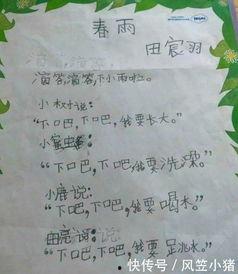 春雨
田宸羽
滴答,滴答,下小雨啦。
小树说:
"下吧,下吧,我要长大。"
"下吧,下吧,我要洗澡。"
小鹿说:
"下吧,下吧,我要喝水。"
说:
"下吧,下吧,我要跳水。"
快传号/风笠小猪